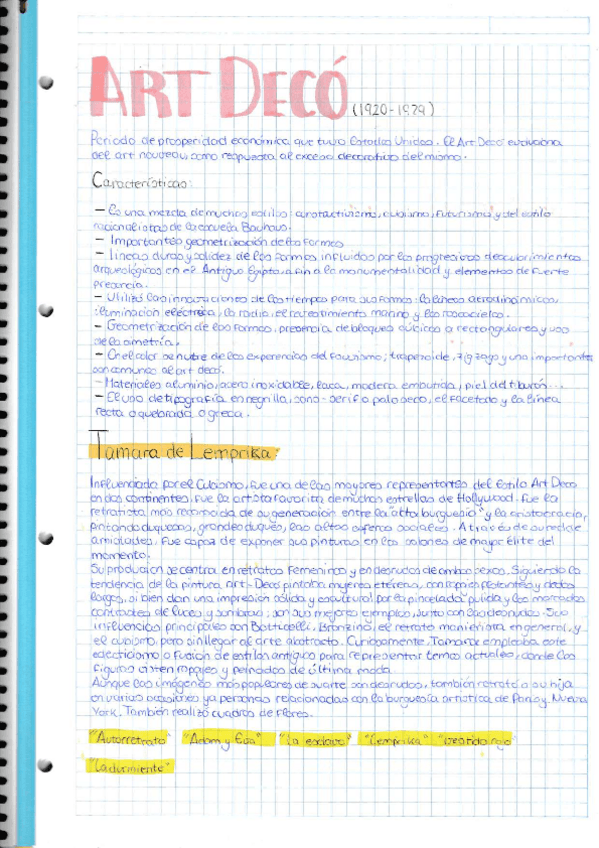 ART DECÓ (1920-1929)
Periodo de prosperidad económica que tuvo Estados Unidos. El Art Decó evoluciona
del art nouveau, como respuesta al exceso decorativo del mismo.
Características:
- Es una mezcla de muchos estilos: constructivismo, cubismo, futurismo y del estilo
racionalistas de la escuela Bauhaus.
- Importantes geometrización de las formas
- líneas duras y solidez de las formas, influidos por los progresivos descubrimientos
arqueológicos en el Antiguo Egipto, afín a la monumentalidad y elementos de fuerte
presencia.
- Utilizó las innovaciones de los tiempos para sus formas: las líneas aerodinámicas,
iluminación eléctrica, la radio, el revestimiento marino y los rascacielos.
- Geometrización de las formas, presencia de bloques cúbicos o rectangulares y uso
de la simetría.
- En el color se nutre de las experiencias del fauvismo; trapezoide, zigzags y una importante
son comunes al art decó.
- Materiales aluminio, acero inoxidable, laca, madera embutida, piel del tiburón...
- El uso de tipografía en negrilla, sans-serif o palo seco, el facetado y la línea
recta o quebrada o greca.
Tamara de Lemprika:
Influenciada por el Cubismo, fue una de las mayores representantes del estilo Art Deco
en dos continentes, fue la artista favorita de muchas estrellas de Hollywood. Fue la
retratista más reconocida de su generación entre la "alta burguesía" y la aristocracia,
pintando duquesas, grandes duques, las altas esferas sociales. A través de su red de
amistades, fue capaz de exponer sus pinturas en los salones de mayor élite del
momento.
Su producion se centra en retratos femeninos y en desnudos de ambos sexos. Siguiendo la
tendencia de la pintura art-Deco pintaba mujeres etéreas, con ropajes flotantes y dedos
largos, si bien dan una impresión sólida y escultural por la pincelada pulida y los marcados
contrastes de luces y sombras; son sus mejores ejemplos, junto con los desnudos. Sus
influencias principales son Botticelli, Bronzino, el retrato manierista en general, y
el cubismo, pero sin llegar al arte abstracto. Curiosamente, Tamara empleaba este
eclecticismo o fusión de estilos antiguos para representar temas actuales, donde las
figuras visten ropajes y peinados de última moda.
Aunque las imágenes más populares de su arte son desnudos, también retrató a su hija
en varias ocasiones y a personas relacionadas con la burguesía artística de París y Nueva
York. También realizó cuadros de flores.
"Autorretrato" "Adam y Eva" "La esclava" "Lemprika" "Vestido rojo"
"La durmiente"